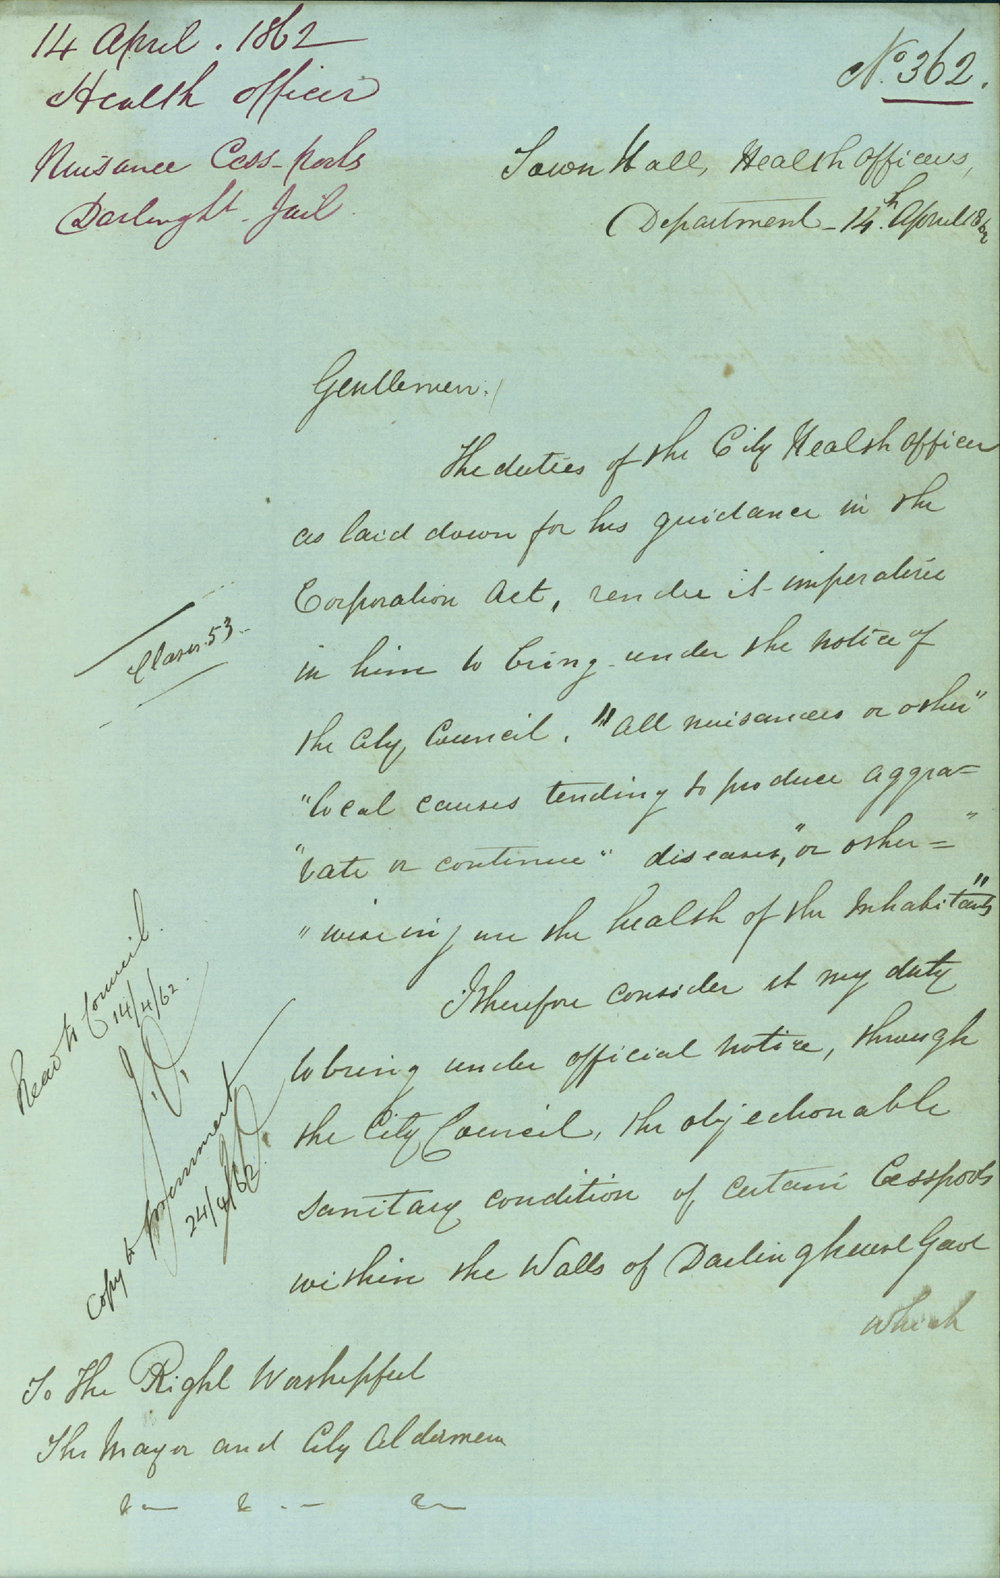 14 April. 1862
Health Officer
Nuisance Cess-pools
Darlinght. Jail.
No. 362.
Town Hall, Health Officers,
Department - 14th April 1862
Gentlemen.
The duties of the City Health Officer
as laid down for his guidance in the
Corporation Act, render it imperative
in him to bring under the notice of
Clause. 53.
the City Council. "All nuisances or other"
"local causes tending to produce aggra=
"vate or continue" diseases," or other="
"wise injure the health of the Inhabitants"
I therefore consider it my duty
to bring under official notice, through
the City Council, the objectionable
sanitary condition of certain Cesspools
within the Walls of Darlinghurst Gaol
which
Read to Council.
14/4/62.
Copy to Government
24/4/62.
To The Right Worshipful
The Mayor and City Aldermen
&c &c &c